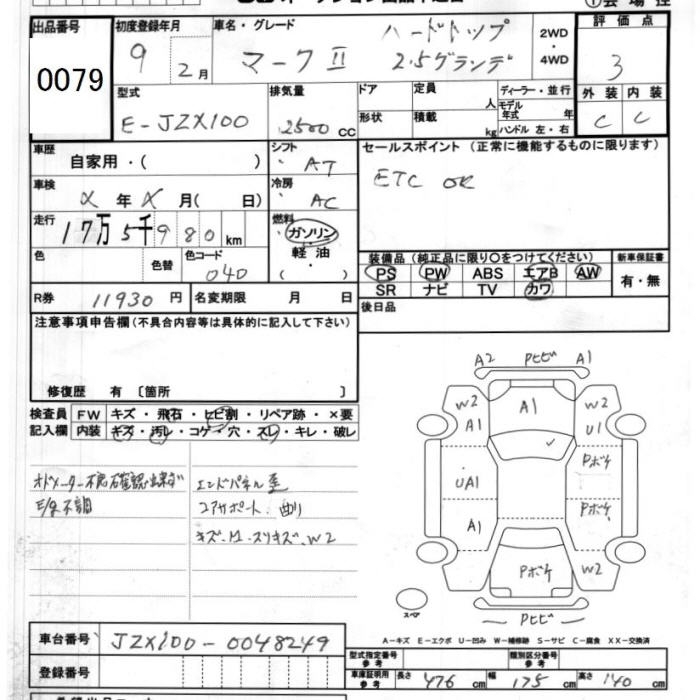 出品番号 初度登録年月 車名・グレード ハードトップ 2WD ・ 4WD 評価点
0079 9 2月 マークII 2.5グランデ 3
型式 排気量 ドア 定員 人 ディーラー・並行 外装 内装
E-JZX100 2500 CC 形状 積載 kg モデル年式 年 ハンドル 左・右 C C
車歴 自家用・( ) シフト AT セールスポイント (正常に機能するものに限ります)
車検 X 年 X 月(日) 冷房 AC ETC OK
走行 17万5千980km 燃料 ガソリン・軽油・( )
色 色替 色コード 040 装備品 (純正品に限り○をつけてください) 新車保証書
PS PW ABS エアB AW 有・無
R券 11930 円 名変期限 月 日 SR ナビ TV カワ
注意事項申告欄 (不具合内容等は具体的に記入して下さい) 後日品
修復歴 有 [箇所 ]
検査員 FW キズ・飛石・ヒビ割・リペア跡・×要
記入欄 内装 キズ・汚レ・コゲ・穴・スレ・キレ・破レ
エンドパネル歪
E/g不調 コアサポート 曲り
W2
A2 Pヒビ A1
W2 A1 W2
A1 U1
Pボケ
UA1
A1 Pボケ
Pボケ W2
スペア Pヒビ
A-キズ E-エクボ U-凹み W-補修跡 S-サビ C-腐食 XX-交換済
車台番号 JZX100-0048249
型式指定番号 参考 類別区分番号 参考
登録番号 車庫証明用 参考 長さ 476 cm 幅 175 cm 高さ 140 cm